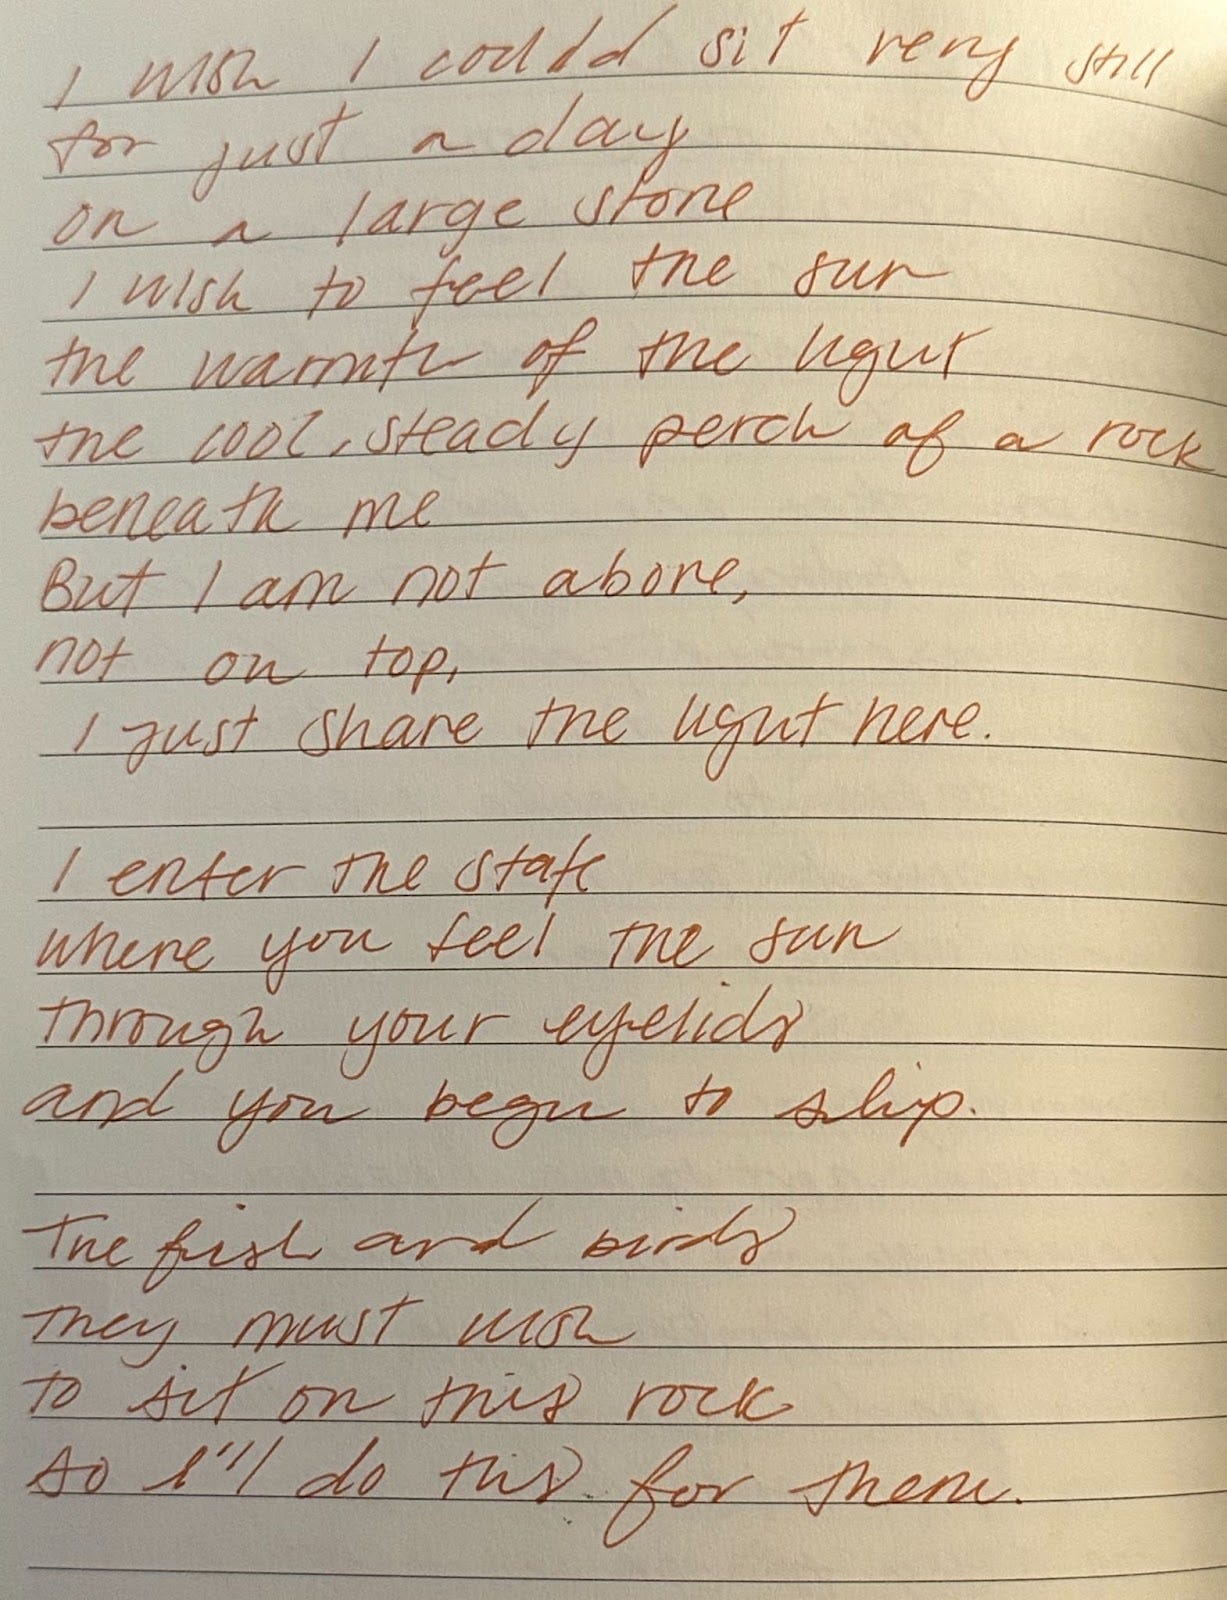 I wish I could sit very still
for just a day
on a large stone
I wish to feel the sun
the warmth of the light
the cool, steady perch of a rock
beneath me
But I am not above,
not on top,
I just share the light here.
I enter the state
where you feel the sun
through your eyelids
and you begin to slip.
The fish and birds
they must wish
to sit on this rock
so I'll do this for them.